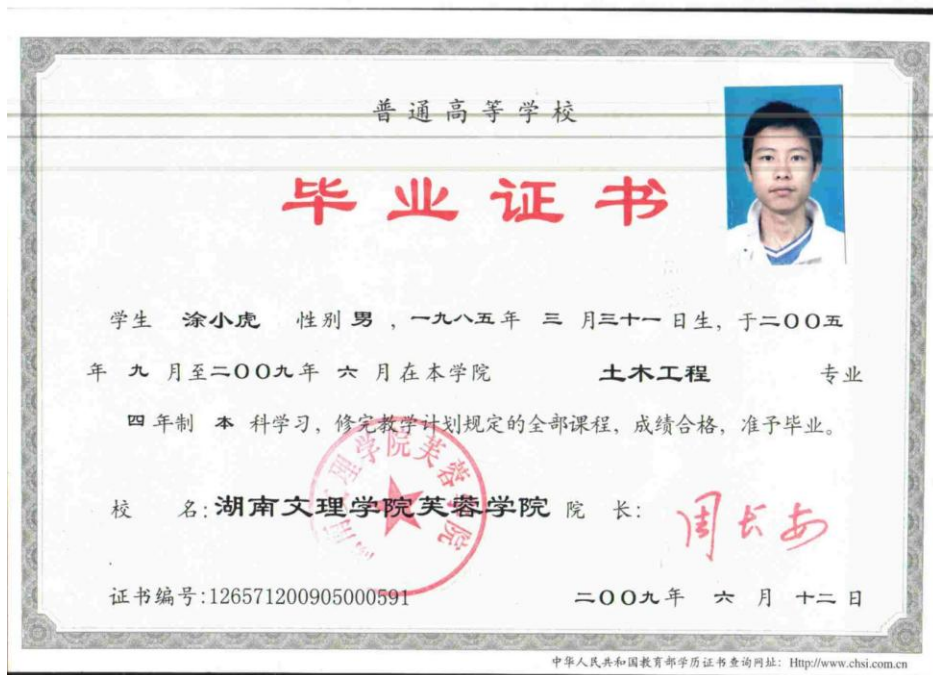 普通高等学校
毕业证书
学生 涂小虎 性别 男 ，一九八五年 三 月三十一日生，于二00五
年 九 月至二00九年 六 月在本学院 土木工程 专业
四 年制 本 科学习，修完教学计划规定的全部课程，成绩合格，准予毕业。
理学院芙蓉学院
校 名：湖南文理学院芙蓉学院 院 长： 周长安
证书编号:126571200905000591 二00九年 六 月 十二 日
中华人民共和国教育部学历证书查询网址：Http://www.chsi.com.cn